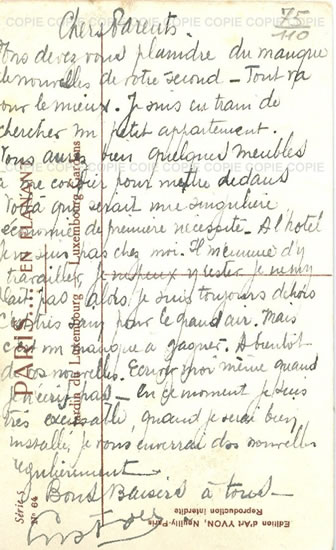 COPIE COPIE COPIE COPIE COPIE COPIE
75
110
Chers Parents.
Vous devez vous plaindre du manque
de nouvelles de votre second — Tout va
pour le mieux. Je suis en train de
chercher un petit appartement.
Vous aurez bien quelques meubles
à me confier pour mettre dedans
Voilà qui serait une singulière
économie de première nécessité. A l'hotel
je ne suis pas chez moi. Il m'ennuie d'y
travailler, je ne peux y rester je ne m'y
plait pas alors, je suis toujours dehors
C'est très bien pour le grand air. Mais
c'est un manque à gagner. A bientot
de vos nouvelles. Ecrivez moi même quand
je n'écris pas — En ce moment je suis
très excusable, quand je serai bien
installé, je vous enverrai des nouvelles
regulièrement
Bons Baisers à tous —
PARIS.... EN FLANANT
Jardin du Luxembourg — Luxembourg Gardens
Série
N° 64
Edition d'Art YVON, Neuilly-Paris
Reproduction interdite